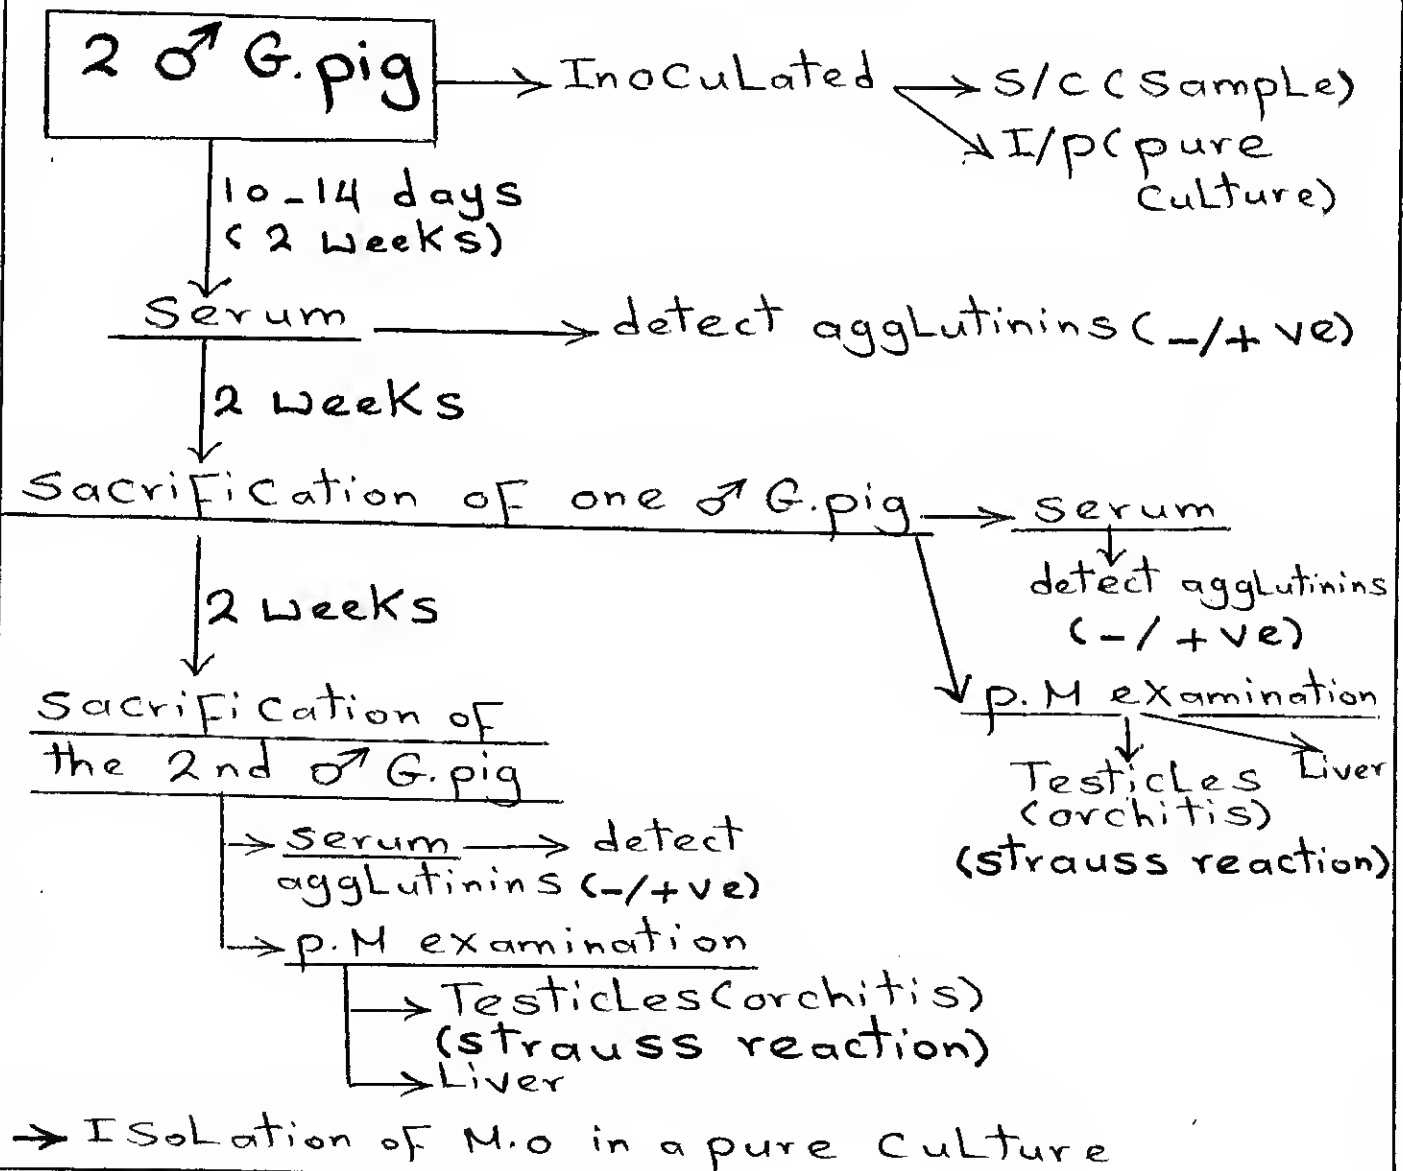 2 ♂ G.pig → Inoculated → S/C (Sample)
→ I/p (pure
culture)
10-14 days
(2 weeks)
Serum → detect agglutinins (-/+ ve)
2 weeks
Sacrification of one ♂ G.pig → serum
detect agglutinins
(-/ +ve)
2 weeks
p.M examination
Liver
Testicles
(orchitis)
(strauss reaction)
Sacrification of
the 2nd ♂ G.pig
→ serum → detect
agglutinins (-/+ve)
→ p.M examination
→ Testicles (orchitis)
(strauss reaction)
→ Liver
→ Isolation of M.o in a pure culture